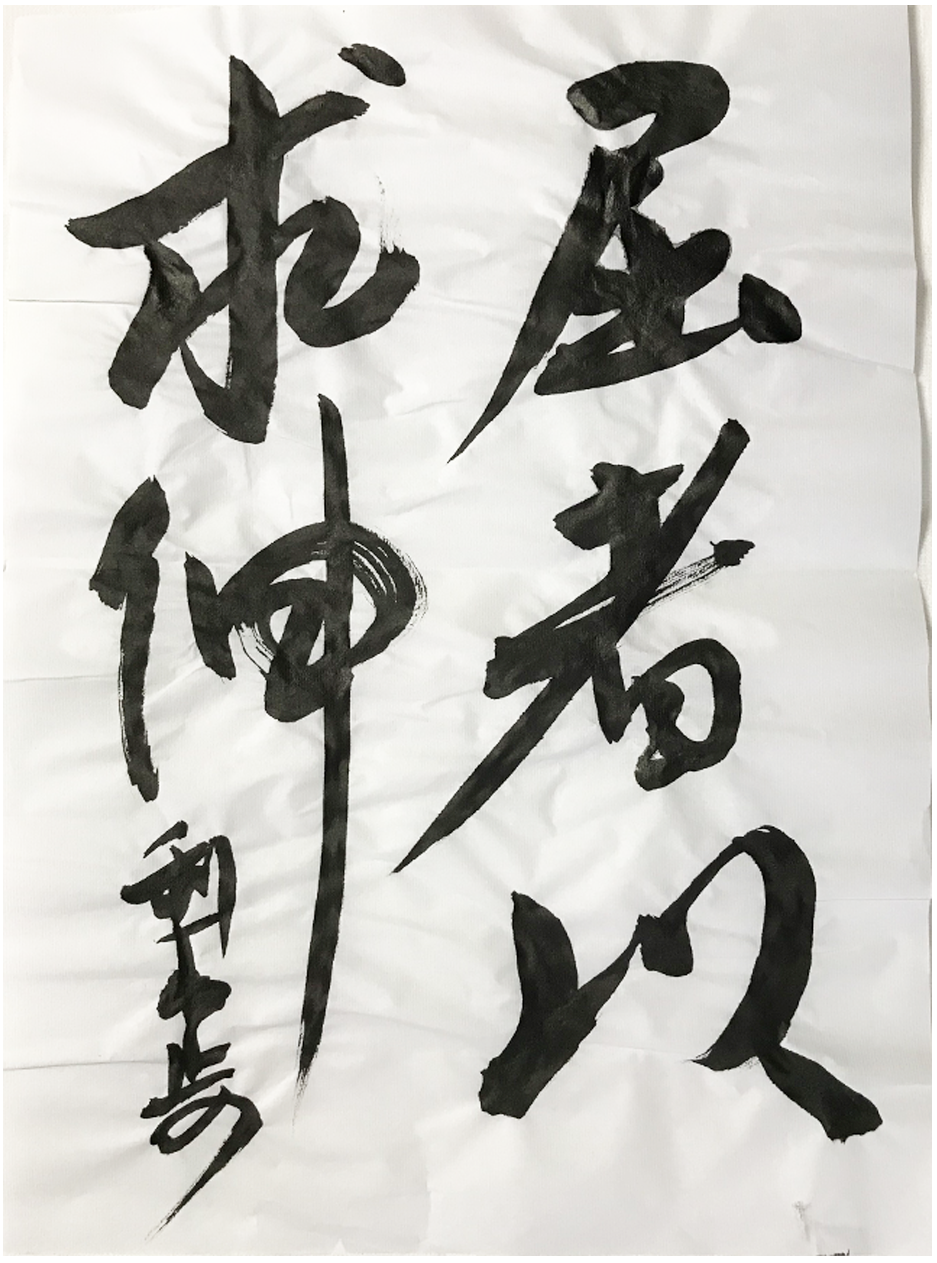 屈者以
求伸